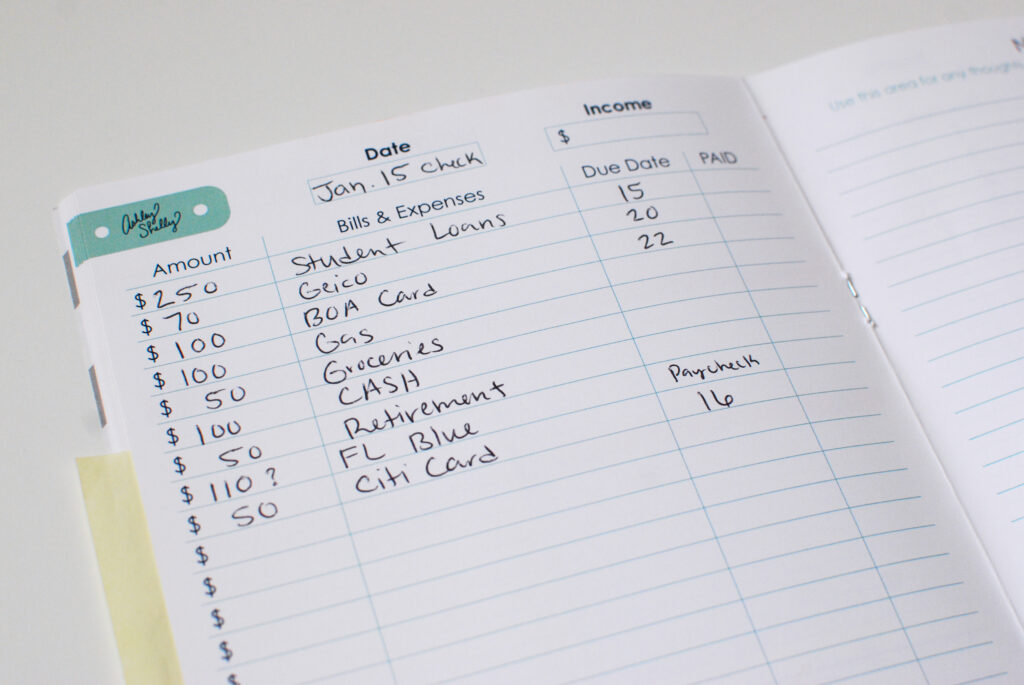 Date
Income
Jan. 15 check
$
Ashley Shelly
Amount Bills & Expenses Due Date PAID
$ 250 Student Loans 15
$ 70 Geico 20
$ 100 BOA Card 22
$ 100 Gas
$ 50 Groceries
$ 100 CASH
$ 50 Retirement Paycheck
$ 110 ? FL Blue 16
$ 50 Citi Card
$
$
$
$
$
Use this area for any thoughts